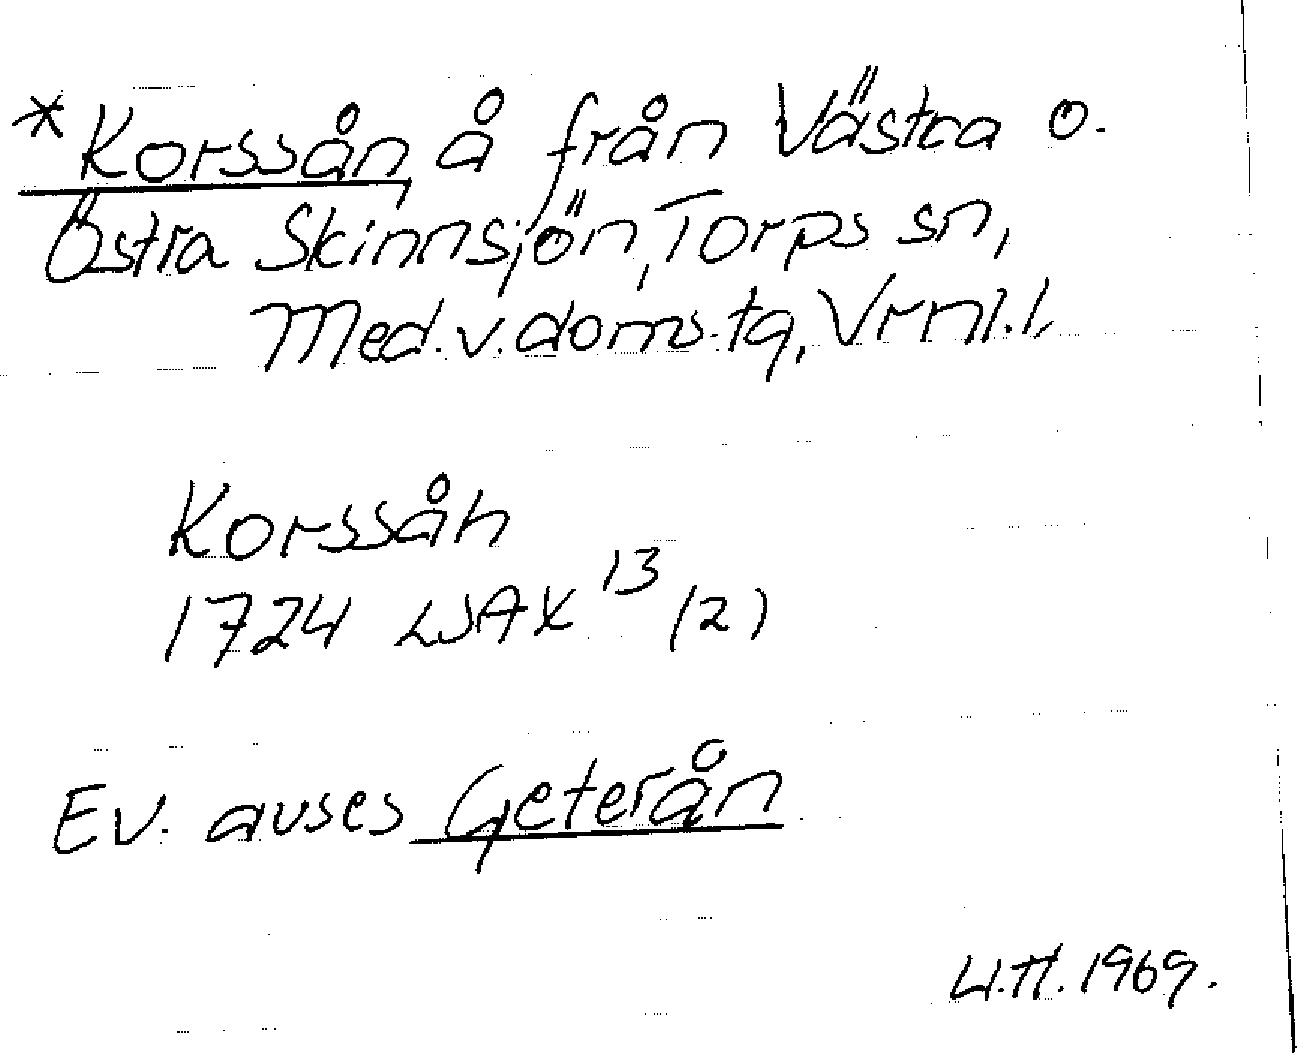 *Korssån, å från Västra o.
Östra Skinnsjön, Torps sn,
Med. v. doms. tg, Vrml. l,
Korssåh
1724 LSA X 13 (2)
Ev. avses Geterån
U.H. 1969.